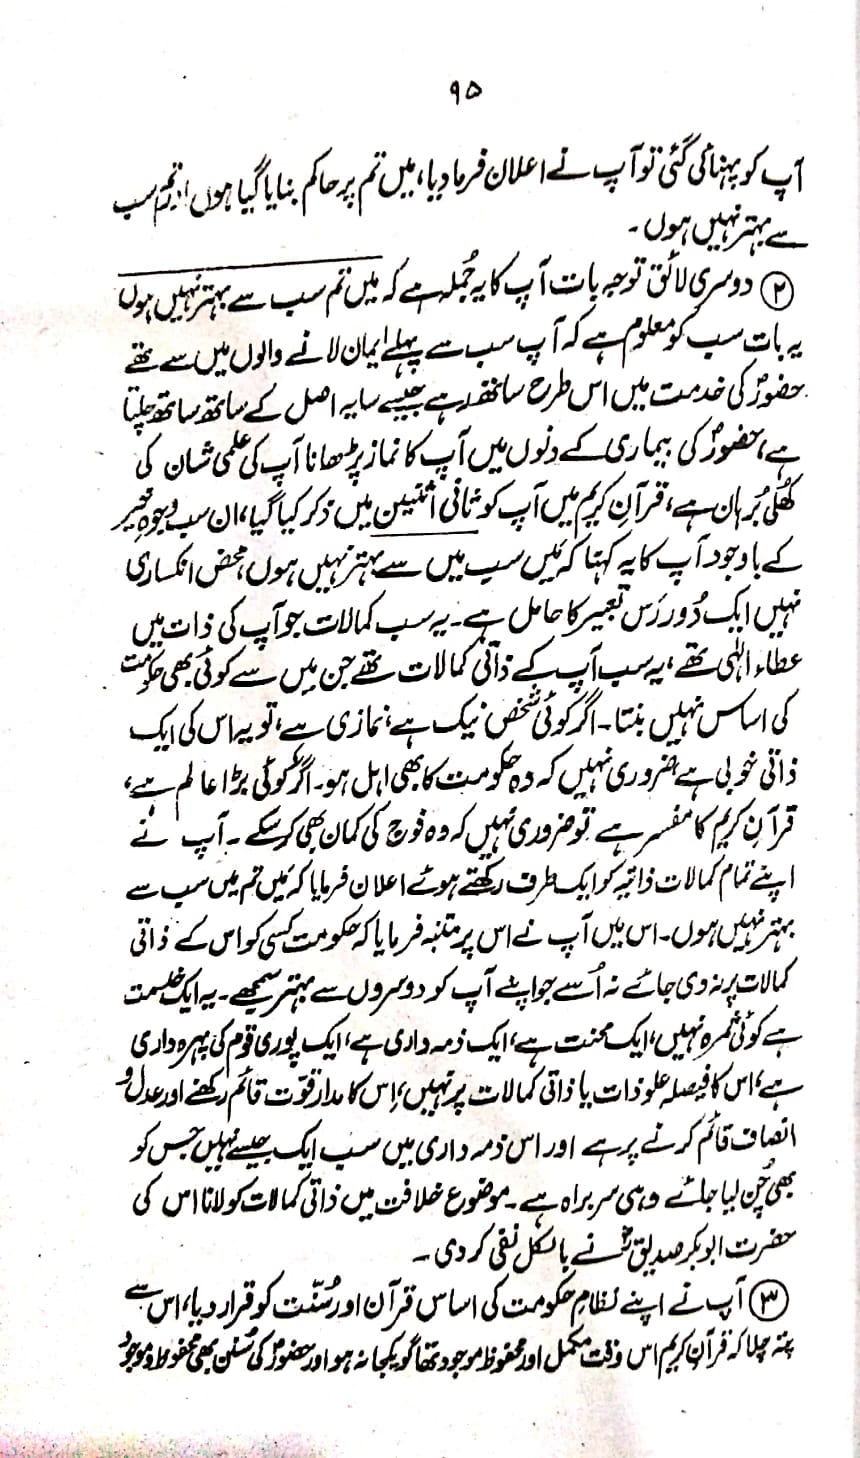 ۹۵
آپ کو پہنائی گئی تو آپ نے اعلان فرما دیا، میں تم پر حاکم بنایا گیا ہوں اور تم سب
سے بہتر نہیں ہوں۔
② دوسری لائق توجہ بات آپ کا یہ جُملہ ہے کہ میں تم سب سے بہتر نہیں ہوں
یہ بات سب کو معلوم ہے کہ آپ سب سے پہلے ایمان لانے والوں میں سے تھے
حضورؐ کی خدمت میں اس طرح ساتھ رہے جیسے سایہ اصل کے ساتھ ساتھ چلتا
ہے، حضورؐ کی بیماری کے دنوں میں آپ کا نماز پڑھانا آپ کی علمی شان کی
کھُلی بُرہان ہے، قرآنِ کریم میں آپ کو ثانی اثنین میں ذکر کیا گیا، ان سب وجوہِ خیر
کے باوجود آپ کا یہ کہنا کہ میں سب میں سے بہتر نہیں ہوں، محض انکساری
نہیں ایک دُور رَس تعبیر کا حامل ہے۔ یہ سب کمالات جو آپ کی ذات میں
عطاء الٰہی تھے، یہ سب آپ کے ذاتی کمالات تھے جن میں سے کوئی بھی حکومت
کی اساس نہیں بنتا۔ اگر کوئی شخص نیک ہے، نمازی ہے، تو یہ اس کی ایک
ذاتی خوبی ہے، ضروری نہیں کہ وہ حکومت کا بھی اہل ہو۔ اگر کوئی بڑا عالم ہے،
قرآنِ کریم کا مفسر ہے تو ضروری نہیں کہ وہ فوج کی کمان بھی کر سکے۔ آپ نے
اپنے تمام کمالات ذاتیہ کو ایک طرف رکھتے ہوئے اعلان فرمایا کہ میں تم میں سب سے
بہتر نہیں ہوں۔ اس میں آپ نے اس پر متنبہ فرمایا کہ حکومت کسی کو اس کے ذاتی
کمالات پر نہ دی جائے نہ اُسے جو اپنے آپ کو دوسروں سے بہتر سمجھے۔ یہ ایک خدمت
ہے کوئی ثمرہ نہیں، ایک محنت ہے، ایک ذمہ داری ہے، ایک پوری قوم کی پہرہ داری
ہے، اس کا فیصلہ علو ذات یا ذاتی کمالات پر نہیں، اِس کا مدار قوّت قائم رکھنے اور عدل و
انصاف قائم کرنے پر ہے اور اس ذمہ داری میں سب ایک جیسے نہیں جس کو
بھی چُن لیا جائے وہی سربراہ ہے۔ موضوع خلافت میں ذاتی کمالات کو لانا اس کی
حضرت ابوبکر صدیقؓ نے بالکل نفی کر دی۔
③ آپ نے اپنے نظامِ حکومت کی اساس قرآن اور سُنّت کو قرار دیا، اس سے
پتہ چلا کہ قرآنِ کریم اس وقت مکمل اور محفوظ موجود تھا گو یکجا نہ ہو اور حضورؐ کی سُنن بھی محفوظ و موجود